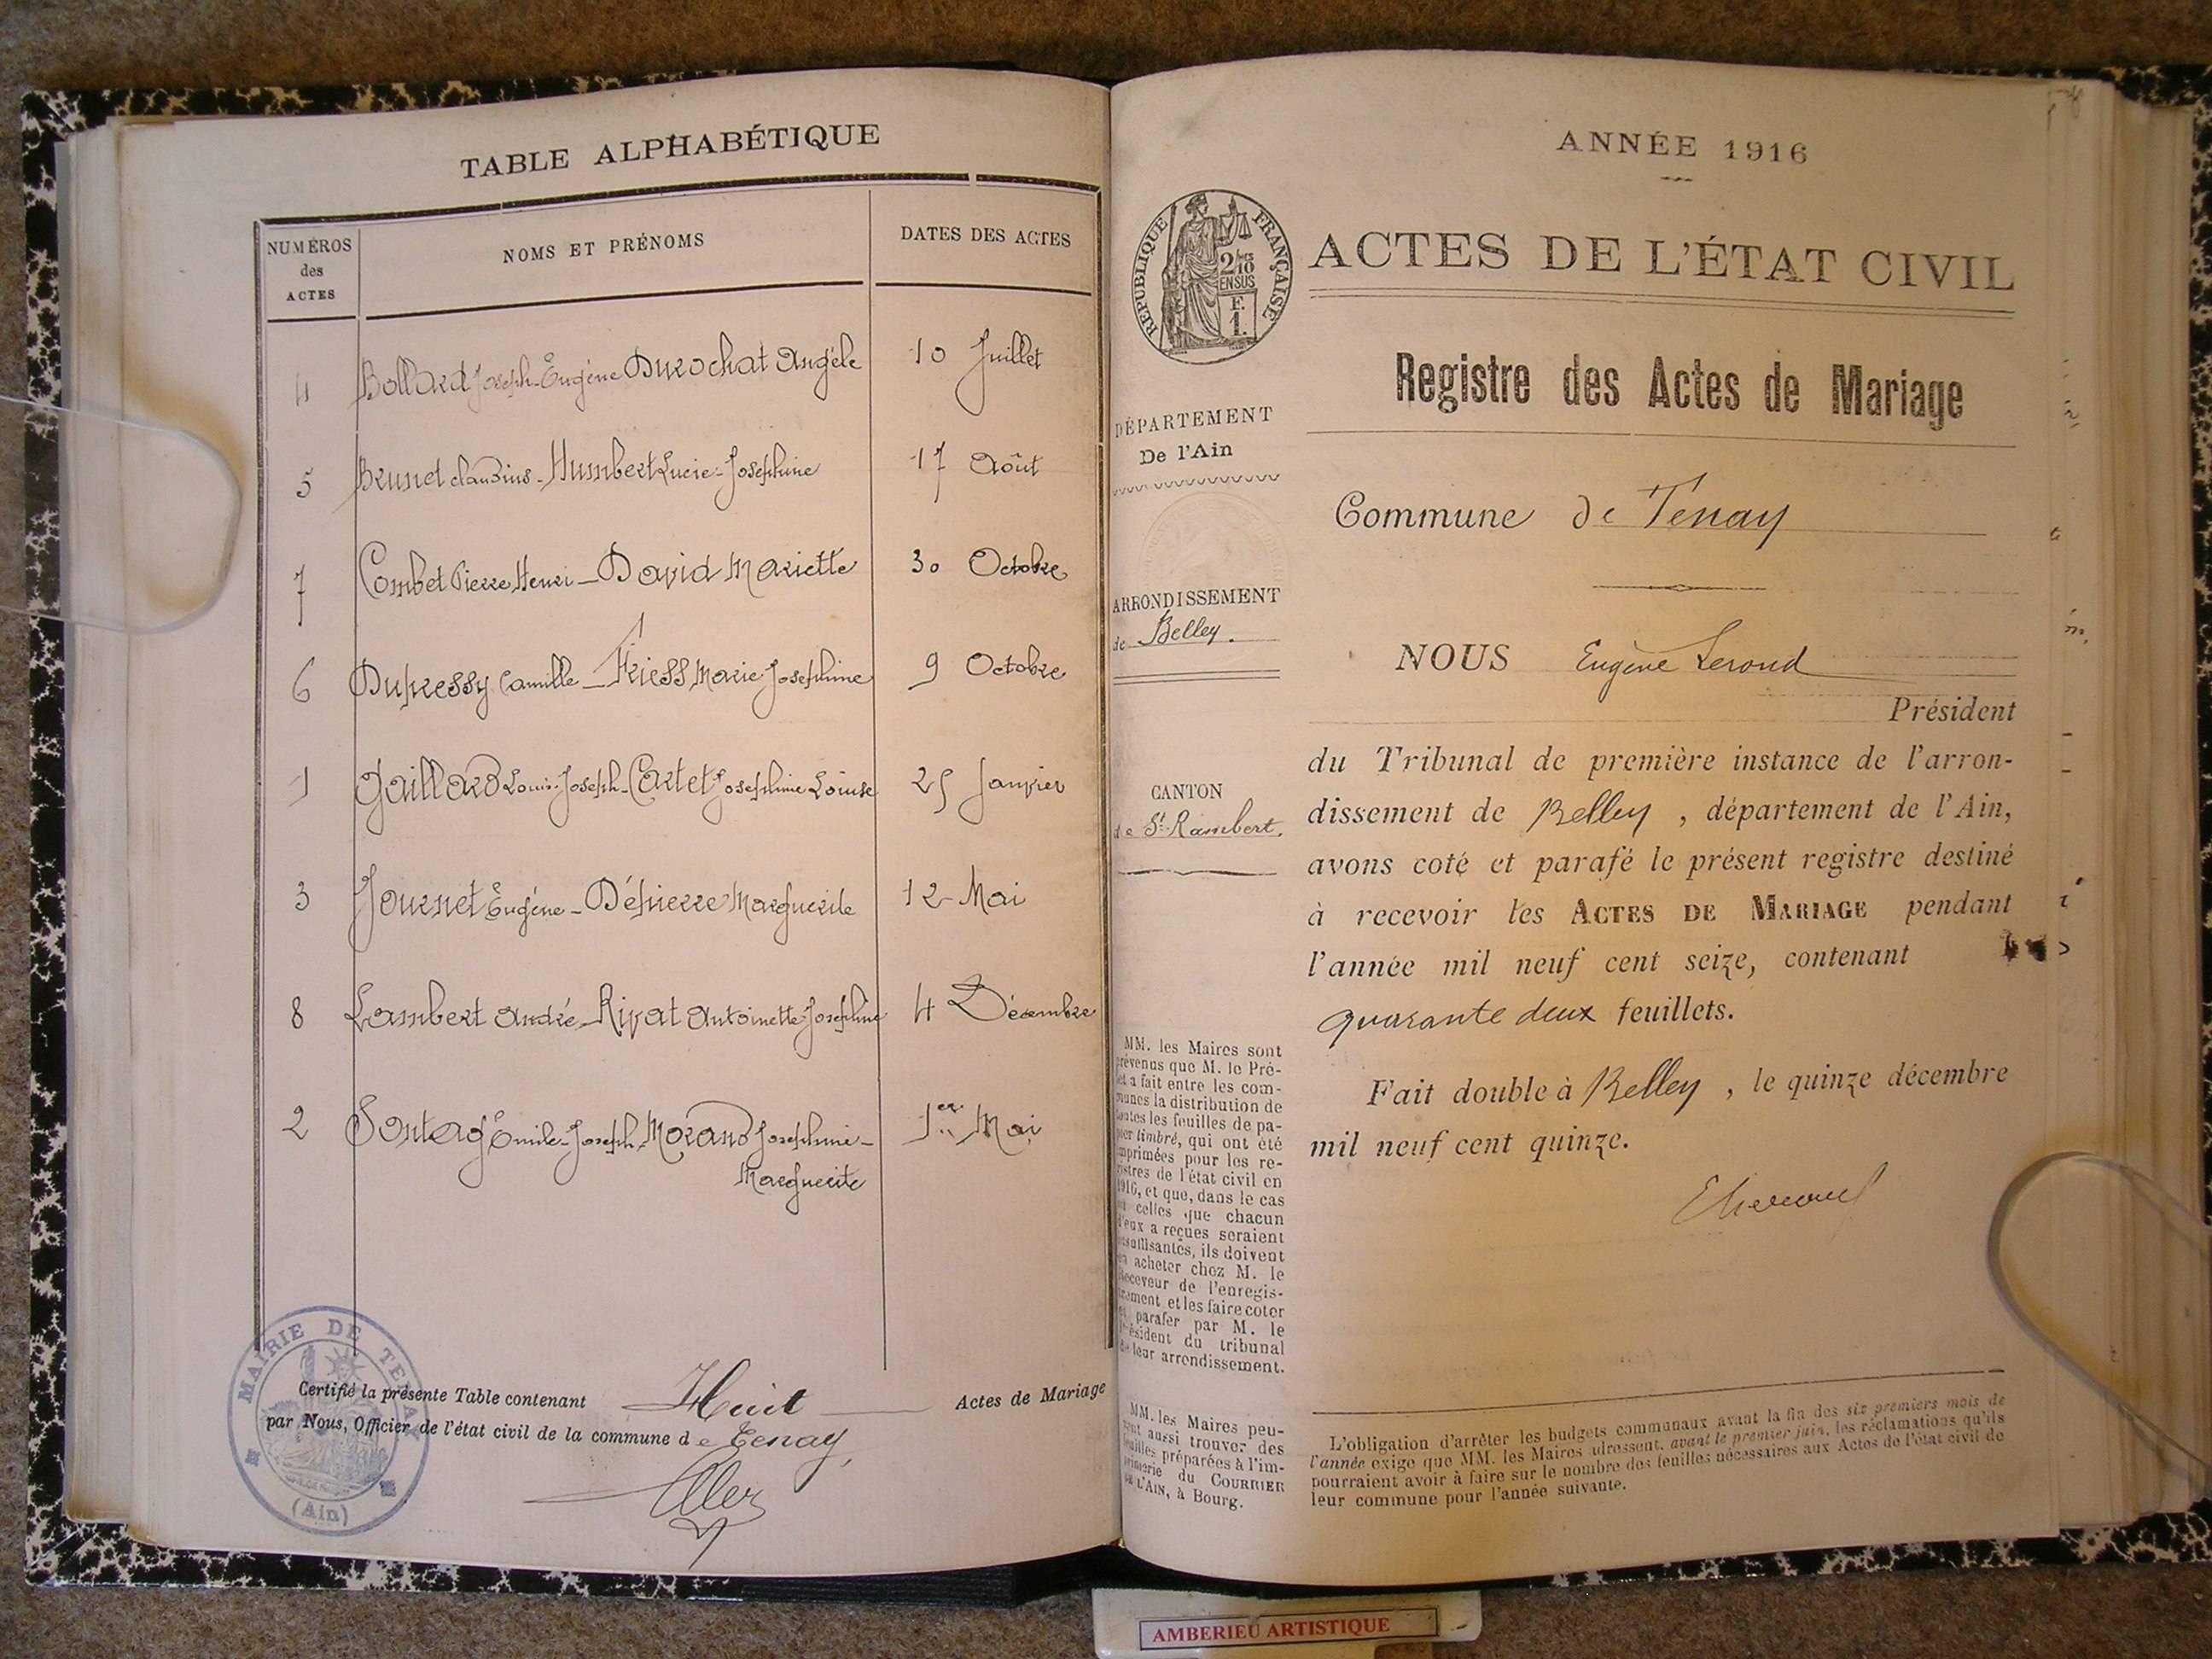 TABLE ALPHABÉTIQUE
NUMÉROS
des
ACTES
NOMS ET PRÉNOMS
DATES DES ACTES
4 Bollard Joseph-Eugène Durochat Angèle 10 Juillet
5 Brunet claudius - Humbert Lucie-Joséphine 17 Août
7 Combet Pierre Henri - David Mariette 30 Octobre
6 Dupressy Camille - Friess Marie Joséphine 9 Octobre
1 Gaillard Louis-Joseph-Cartet Joséphine Louise 25 Janvier
3 Journet Eugène - Dépierre Marguerite 12 Mai
8 Lambert André - Rivat Antoinette Joséphine 4 Décembre
2 Sontag Emile-Joseph Morand Joséphine-
Marguerite
1er Mai
MAIRIE DE TENAY
(Ain)
Certifié la présente Table contenant Huit Actes de Mariage
par Nous, Officier de l'état civil de la commune de Tenay,
ANNÉE 1916
RÉPUBLIQUE FRANÇAISE
2/10
EN SUS
F.
1.
ACTES DE L'ÉTAT CIVIL
Registre des Actes de Mariage
DÉPARTEMENT
De l'Ain
Commune de Tenay
ARRONDISSEMENT
de Belley.
NOUS Eugène Leroud
Président
du Tribunal de première instance de l'arron-
dissement de Belley, département de l'Ain,
avons coté et parafé le présent registre destiné
à recevoir les ACTES DE MARIAGE pendant
l'année mil neuf cent seize, contenant
quarante deux feuillets.
Fait double à Belley, le quinze décembre
mil neuf cent quinze.
CANTON
de St Rambert.
MM. les Maires sont
prévenus que M. le Pré-
fet a fait entre les com-
munes la distribution de
toutes les feuilles de pa-
pier timbré, qui ont été
imprimées pour les re-
gistres de l'état civil en
1916, et que, dans le cas
où celles que chacun
d'eux a reçues seraient
insuffisantes, ils doivent
en acheter chez M. le
Receveur de l'enregis-
trement et les faire coter
et parafer par M. le
Président du tribunal
de leur arrondissement.
MM. les Maires peu-
vent aussi trouver des
feuilles préparées à l'im-
primerie du COURRIER
DE L'AIN, à Bourg.
L'obligation d'arrêter les budgets communaux avant la fin des six premiers mois de
l'année exige que MM. les Maires adressent, avant le premier juin, les réclamations qu'ils
pourraient avoir à faire sur le nombre des feuilles nécessaires aux Actes de l'état civil de
leur commune pour l'année suivante.
AMBERIEU ARTISTIQUE